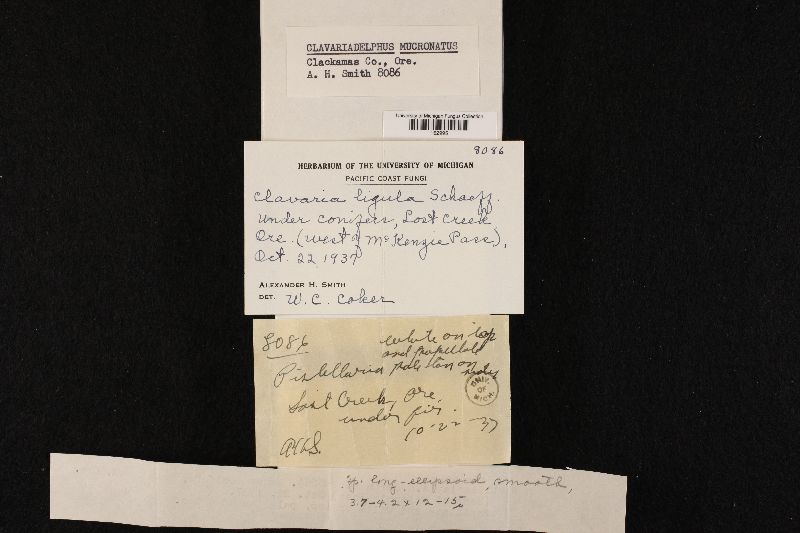 CLAVARIADELPHUS MUCRONATUS
Clackamas Co., Ore.
A. H. Smith 8086
University of Michigan Fungus Collection
8086
HERBARIUM OF THE UNIVERSITY OF MICHIGAN
PACIFIC COAST FUNGI
Clavaria ligula Schaeff.
under conifers, Lost Creek
Ore. (west of McKenzie Pass),
Oct. 22, 1937
ALEXANDER H. SMITH
DET. W. C. Coker
8086
white on top
and
Pistillaria pale tan on
Lost Creek, Ore.
under fir.
10-22-37
AHS.
UNIV. OF MICH.
Sp. long-ellipsoid, smooth,
3.7-4.2 x 12-15